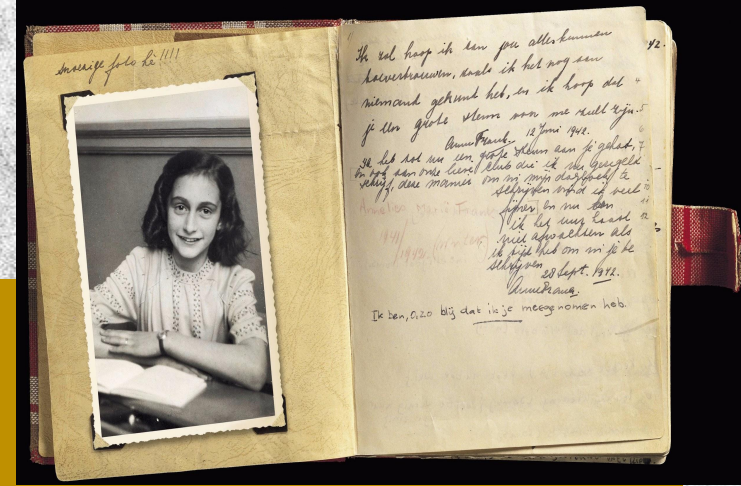 snoezige foto hè!!!!
Ik zal hoop ik aan jou alles kunnen
toevertrouwen, zoals ik het nog aan
niemand gekund heb, en ik hoop dat
je een grote steun van me zult zijn.
Anne Frank. 12 Juni 1942.
Ik heb tot nu een grote steun aan je gehad,
en ook aan onze lieve club die ik nu geregeld
schrijf, deze manier om in mijn dagboek te
schrijven vind ik veel
fijner en nu kan
ik het uur haast
niet afwachten als
ik tijd heb om in je te
schrijven.
28 Sept. 1942.
Anne Frank.
Ik ben, o, zo blij dat ik je meegenomen heb.
42.
4
5
6
7
10
11
12